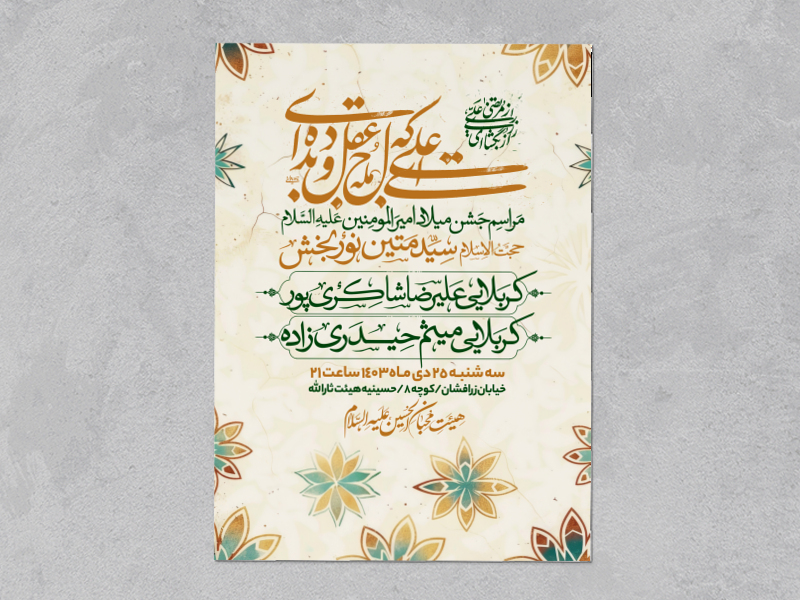 از مرتضی علی
علی که
مراسم جشن میلاد امیرالمومنین علیه السلام
حجت الاسلام سید متین نوربخش
کربلایی علیرضا شاکری پور
کربلایی میثم حیدری زاده
سه شنبه ۲۵ دی ماه ۱۴۰۳ ساعت ۲۱
خیابان زرافشان / کوچه ۸ / حسینیه هیئت ثارالله
هیئت محبان الحسین علیه السلام